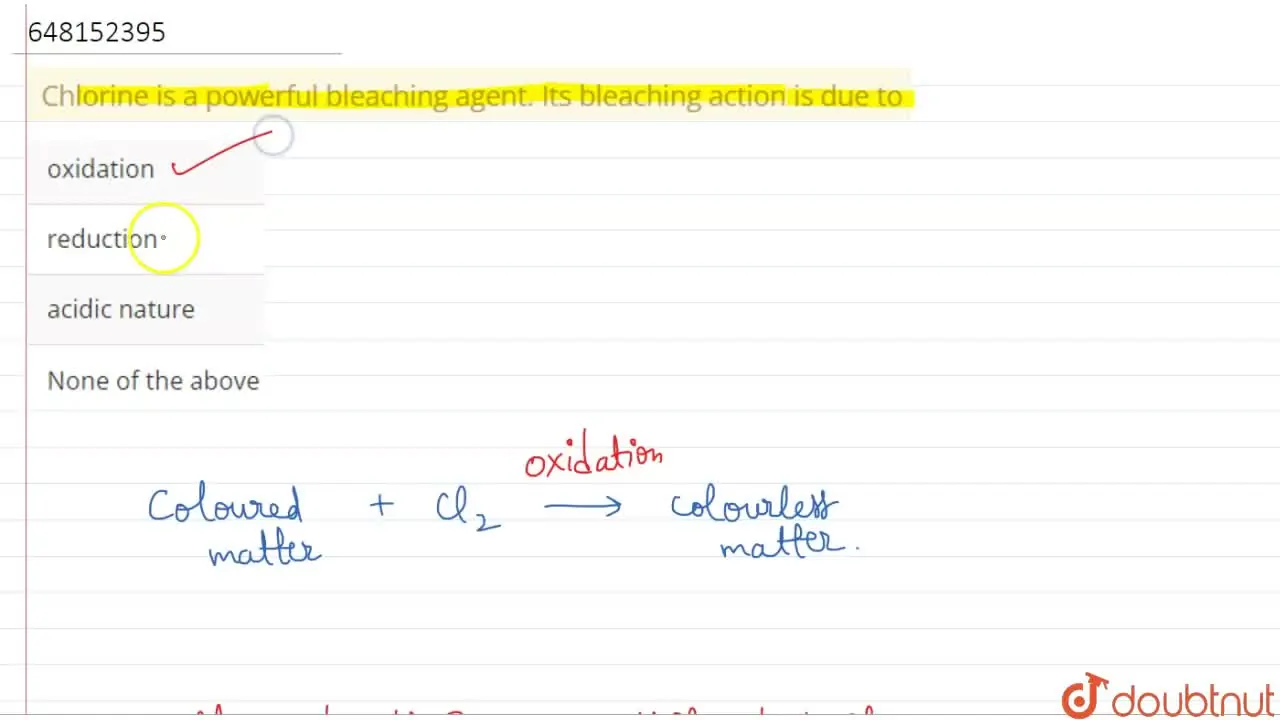 648152395
Chlorine is a powerful bleaching agent. Its bleaching action is due to
oxidation
reduction
acidic nature
None of the above
oxidation
Coloured + Cl2 → colourless
matter matter.
doubtnut